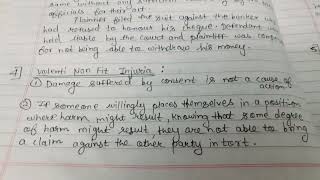 same without any
officials for their act.
Plaintiff filed the suit against the banker who
had refused to honour his cheque. Defendant was
held liable by the Court and plaintiff was compen
for not being able to withdraw his money.
4] Valenti Non Fit Injuria :
① Damage suffered by consent is not a cause of
action
② If someone willingly places themselves in a position
where harm might result, knowing that some degree
of harm might result, they are not able to bring
a claim against the other party in tort.